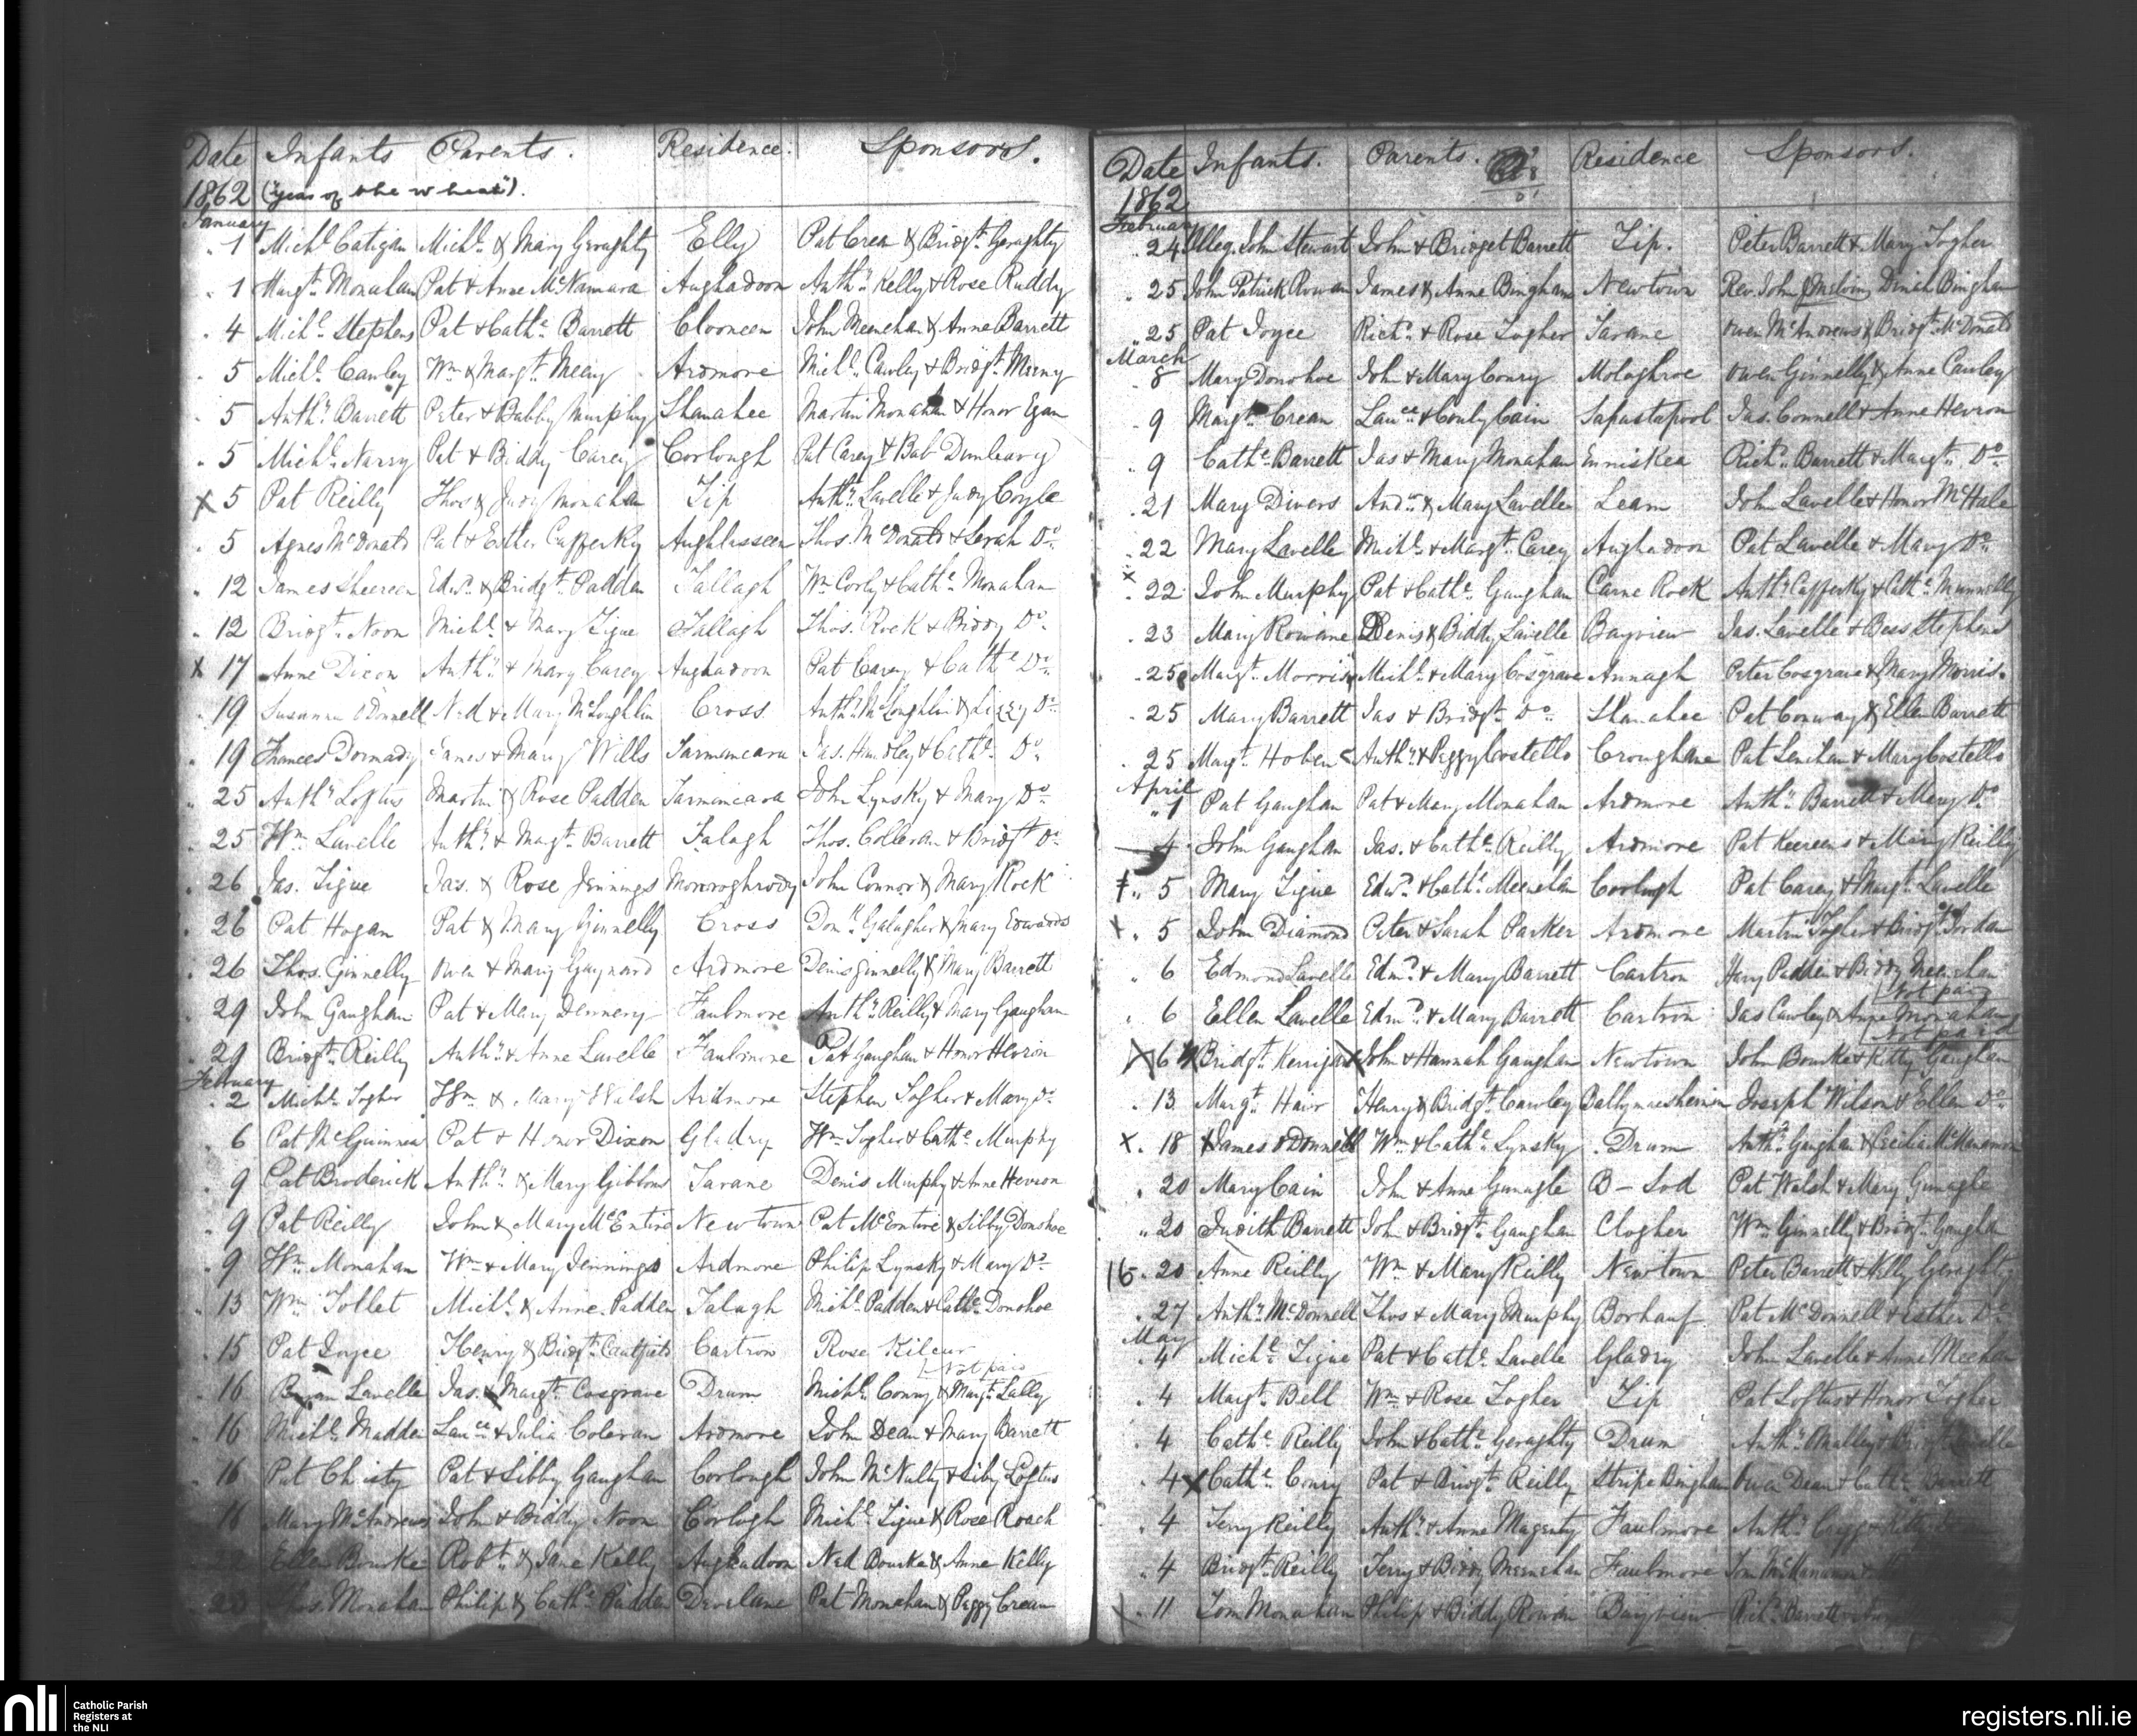 Date Infants Parents. Residence. Sponsors.
1862 ("year of the wheat").
January
1 Michl. Catigan Michl. & Mary Geraghty Elly Pat Crean & Bridgt. Geraghty
1 Margt. Monahan Pat & Anne McNamara Aughadoon Anthy. Kelly & Rose Ruddy
4 Michl. Stephens Pat & Cathe. Barrett Clooneen John Meenehan & Anne Barrett
5 Michl. Cawley Wm. & Margt. Meeny Ardmore Michl. Cawley & Bridgt. Meeny
5 Anthy. Barrett Peter & Babby Murphy Shanahee Martin Monahan & Honor Egan
5 Michl. Narry Pat & Biddy Carey Corlough Pat Carey & Bab Dunleavy
x 5 Pat Reilly Thos & Judy Monahan Tip Anthy. Lavelle & Judy Coyle
5 Agnes McDonald Pat & Esther Cafferky Aughlasseen Thos. McDonald & Sarah Do.
12 James Sheereen Edwd. & Bridgt. Padden Tallagh Wm Corly & Cathe. Monahan
12 Bridgt. Noon Michl. & Mary Tigue Tallagh Thos. Rock & Biddy Do.
x 17 Anne Dixon Anthy. & Mary Carey Aughadoon Pat Carey & Cathe. Do.
19 Susanna O'Donnell Ned & Mary McLoughlin Cross Anthy. McLoughlin & Lizzy Do.
19 Frances Dormady James & Mary Wills Tarmoncara Jas. Handley & Cathe. Do.
25 Anthy. Loftus Martin & Rose Padden Tarmoncara John Lynsky & Mary Do.
25 Wm. Lavelle Anthy. & Margt. Barrett Talagh Thos. Colleran & Bridgt. Do.
26 Jas. Tigue Jas. & Rose Jennings John Connor & Mary Rock
26 Pat Hogan Pat & Mary Ginnelly Cross Galagher & Mary Edwards
26 Thos. Ginnelly Owen & Mary Gaynard Ardmore Denis Ginnelly & Mary Barrett
29 John Gaughan Pat & Mary Dennery Faulmore Anthy. Reilly & Mary Gaughan
29 Bridgt. Reilly Anthy. & Anne Lavelle Faulmore Pat Gaughan & Honor Hevrin
February
2 Michl. Togher Wm. & Mary Walsh Ardmore Stephen Togher & Mary Do.
6 Pat McGuinness Pat & Honor Dixon Gladry Wm. Togher & Cathe. Murphy
9 Pat Broderick Anthy. & Mary Gibbons Tarane Denis Murphy & Anne Hevron
9 Pat Reilly John & Mary McEntire Newtown Pat McEntire & Sibby Donohoe
9 Wm. Monahan Wm. & Mary Jennings Ardmore Philip Lynsky & Mary Do.
13 Wm. Tollet Michl. & Anne Padden Talagh Michl. Padden & Cathe. Donohoe
15 Pat Joyce Henry & Bridgt. Cartron Rose Kilcur
Not paid
16 Bryan Lavelle Jas. & Margt. Cosgrave Drum Michl. Conry & Margt. Lally
16 Michl. Madden Lauce. & Julia Coleran Ardmore John Dean & Mary Barrett
16 Pat Christy Pat & Sibby Gaughan Corlough John McNulty & Siby Loftus
16 Mary McAndrews John & Biddy Noon Corlogh Michl. Tigue & Rose Roach
Ellen Bourke Robt. & Jane Kelly Aughadoon Ned Bourke & Anne Kelly
23 Monahan Philip & Cathe. Padden Deerlane Pat Monahan & Peggy Crean
Date Infants. Parents. Residence Sponsors.
1862
February
24 John Stewart John & Bridget Barrett Tip. Peter Barrett & Mary Togher
25 John Patrick Rowan James & Anne Bingham Newtown Rev. John Melvin Dinah Bingham
25 Pat Joyce Richd. & Rose Togher Tarane Owen McAndrews & Bridgt. McDonald
March
8 Mary Donohoe John & Mary Conry Molaghroe Owen Ginnelly & Anne Cawley
9 Margt. Crean Lauce. & Conly Cain Sapastapool Jas. Connell & Anne Hevron
9 Cathe. Barrett Jas & Mary Monahan Enniskea Richd. Barrett & Margt. Do.
21 Mary Divers Andw. & Mary Lavelle Leam John Lavelle & Honor McHale
22 Mary Lavelle Michl. & Margt. Carey Aughadoon Pat Lavelle & Mary Do.
x 22 John Murphy Pat & Cathe. Gaughan Carne Rock Anthy. Cafferky & Cathe. Munnelly
23 Mary Rowane Denis & Biddy Lavelle Bayview Jas. Lavelle & Bess Stephens
25 Margt. Morris Michl. & Mary Cosgrave Annagh Peter Cosgrave & Mary Morris.
25 Mary Barrett Jas & Bridgt. Do. Shanahee Pat Conway & Ellen Barrett
25 Margt. Hoben Anthy. & Peggy Costello Croughane Pat Lenehan & Mary Costello
April
1 Pat Gaughan Pat & Mary Monahan Ardmore Anthy. Barrett & Mary Do.
4 John Gaughan Jas. & Cathe. Reilly Ardmore Pat Keereens & Mary Reilly
5 Mary Tigue Edwd. & Cathe. Meenehan Corlogh Pat Carey & Margt. Lavelle
x 5 John Diamond Peter & Sarah Parker Ardmore Martin Togher & Bridgt. Jordan
6 Edmond Lavelle Edmd. & Mary Barrett Cartron Hary Padden & Biddy Meenehan
Not paid
6 Ellen Lavelle Edmd. & Mary Barrett Cartron Jas Cawley & Anne Monahan
Not paid
6 Bridgt. Kerrigan John & Hannah Gaughan Newtown John Bourke & Kitty Gaughan
13 Margt. Hair Henry & Bridgt. Cawley Joseph Wilson & Ellen Do.
x 18 James O'Donnell Wm. & Cathe. Lynsky Drum Anthy. Gaughan & Cecilia McManamon
20 Mary Cain John & Anne Gunagle B-Lod Pat Walsh & Mary Gunagle
20 Judith Barrett John & Bridgt. Gaughan Clogher Wm. Ginnelly & Bridgt. Gaughan
16 20 Anne Reilly Wm. & Mary Reilly Newtown Peter Barrett & Nelly Geraghty
27 Anthy. McDonnell Thos & Mary Murphy Borhauf Pat McDonnell & Esther Do.
May
4 Michl. Tigue Pat & Cathe. Lavelle Gladry John Lavelle & Anne Meehan
4 Margt. Bell Wm. & Rose Togher Tip Pat Loftus & Honor Togher
4 Cathe. Reilly John & Cathe. Geraghty Drum Anthy. Malley & Bridgt. Lavelle
4 x Cathe. Conry Pat & Bridgt. Reilly Stripe Bingham Owen Dean & Cathe. Barrett
4 Terry Reilly Anthy. & Anne Magenty Faulmore Anthy.
4 Bridgt. Reilly Terry & Biddy Meenehan Faulmore Tom McManamon &
11 Tom Monahan Philip & Biddy Rowan Bayview Richd. Barrett
nli
Catholic Parish
Registers at
the NLI
registers.nli.ie